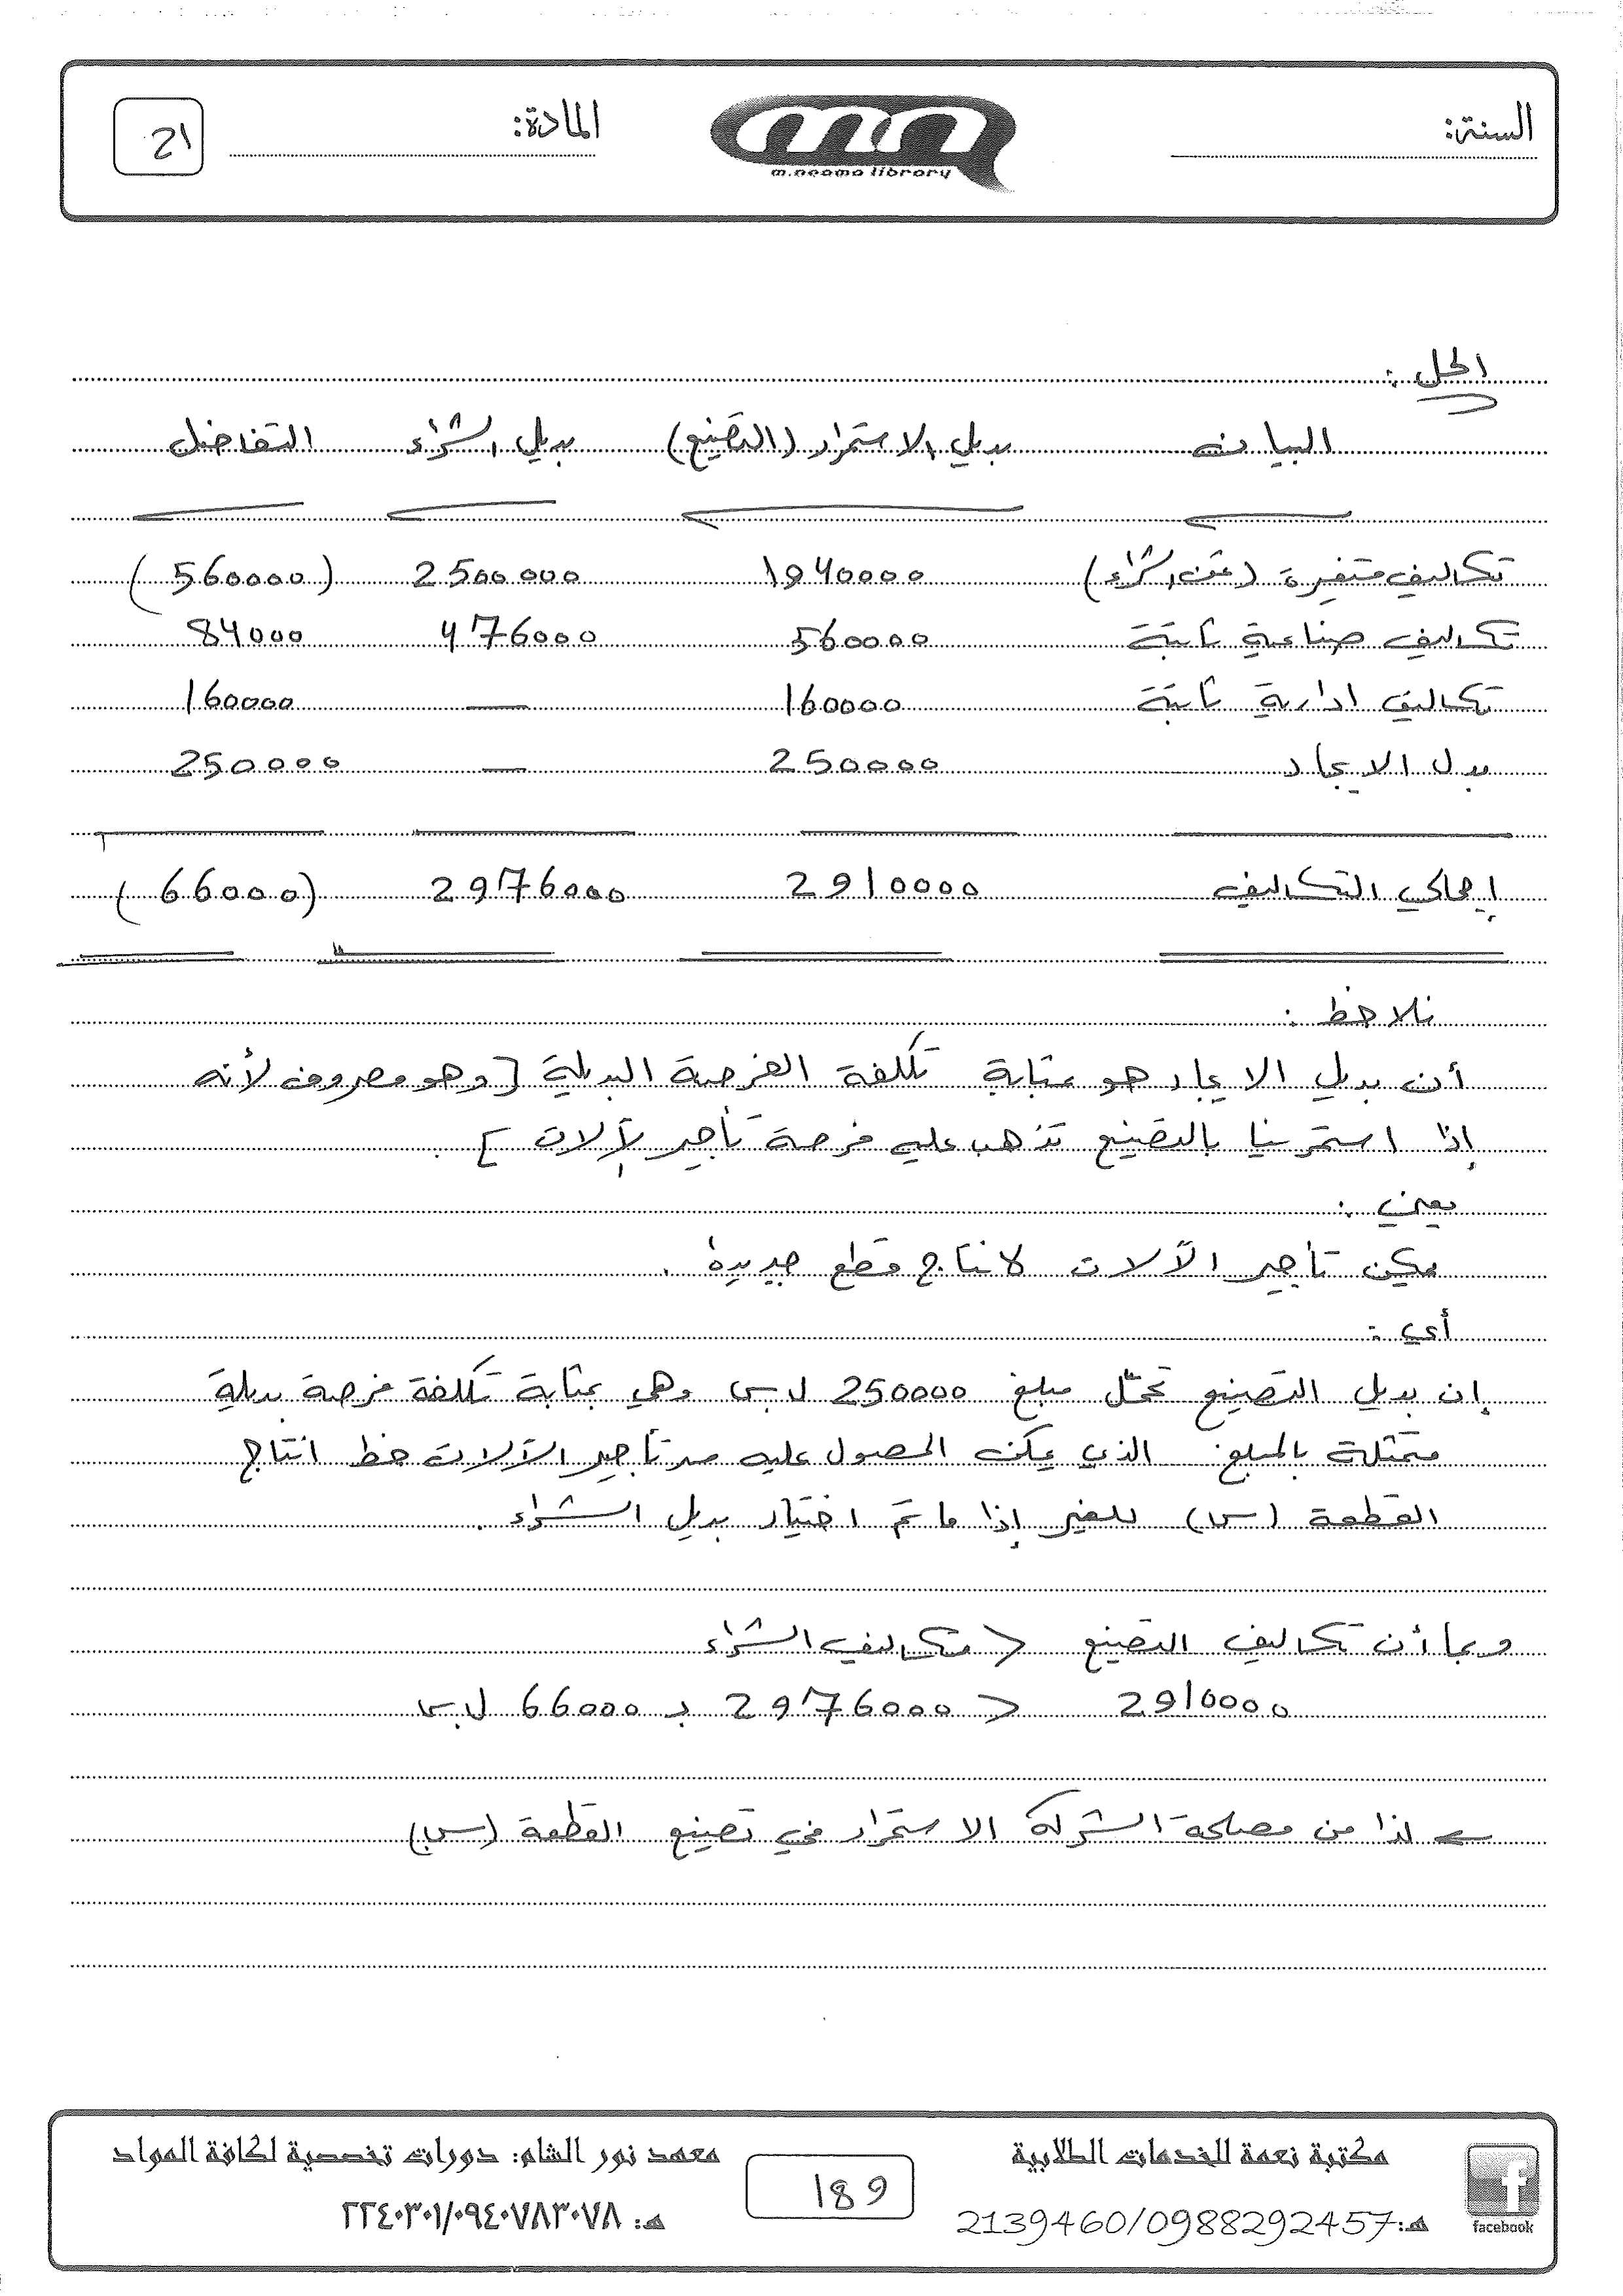 السنة:
المادة:
21
m.neama library
الحل:
البيان بديل الاستمرار (التصنيع) بديل الشراء التفاضل
تكاليف متغيرة (ثمن الشراء) 1940000 2500000 (560000)
تكاليف صناعية ثابتة 560000 476000 84000
تكاليف ادارية ثابتة 160000 — 160000
بدل الايجار 250000 — 250000
إجمالي التكاليف 2910000 2976000 (66000)
نلاحظ:
أن بديل الايجار هو بمثابة تكلفة الفرصة البديلة [وهو مصروف لأنه
إذا استمرينا بالتصنيع تذهب عليه فرصة تأجير الآلات].
يعني:
يمكن تأجير الآلات لانتاج قطع جديدة.
أي:
إن بديل التصنيع تحمّل مبلغ 250000 ل.س وهي بمثابة تكلفة فرصة بديلة
متمثلة بالمبلغ الذي يمكن الحصول عليه من تأجير الآلات خط انتاج
القطعة (س) للغير إذا ما تم اختيار بديل الشراء.
وبما أن تكاليف التصنيع < تكاليف الشراء
2910000 < 2976000 بـ 66000 ل.س
← لذا من مصلحة الشركة الاستمرار في تصنيع القطعة (س)
مكتبة نعمة للخدمات الطلابية
هـ: 2139460/0988292457
facebook
189
معهد نور الشام: دورات تخصصية لكافة المواد
هـ: ٢٢٤٠٣٠١/٠٩٤٠٧٨٣٠٧٨